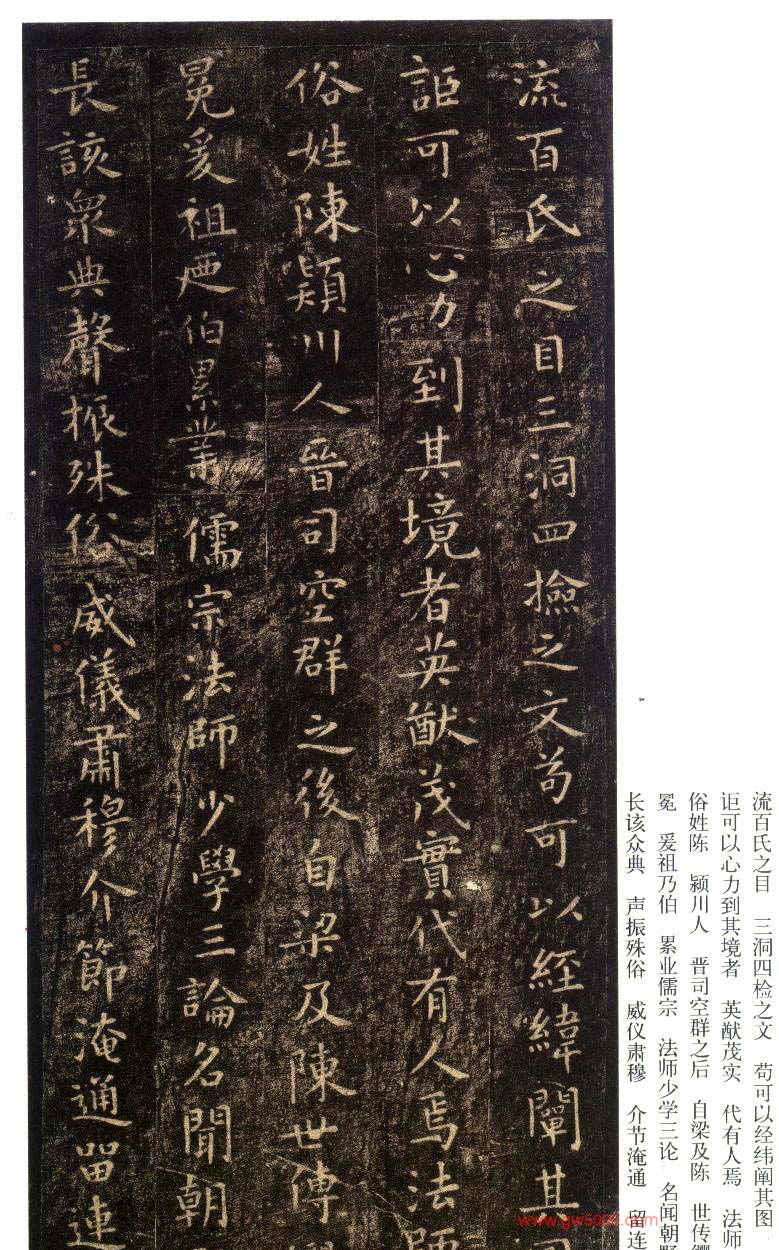 流百氏之目三洞四撿之文苟可以經緯闡其
詎可以心力到其境者英猷茂實代有人焉法師
俗姓陳潁川人晉司空群之後自梁及陳世傳
冕爰祖迺伯累業儒宗法師少學三論名聞朝
長該衆典聲振殊俗威儀肅穆介節淹通留連
流百氏之目 三洞四检之文 苟可以经纬阐其图
讵可以心力到其境者 英猷茂实 代有人焉 法师
俗姓陈 颍川人 晋司空群之后 自梁及陈 世传缨
冕 爰祖乃伯 累业儒宗 法师少学三论 名闻朝野
长该众典 声振殊俗 威仪肃穆 介节淹通 留连